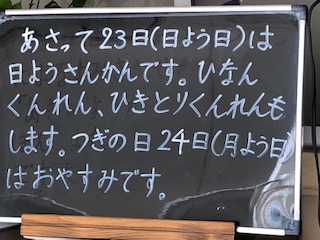 あさって23日(日よう日)は
日ようさんかんです。ひなん
くんれん、ひきとりくんれんも
します。つぎの日24日(月よう日)
はおやすみです。